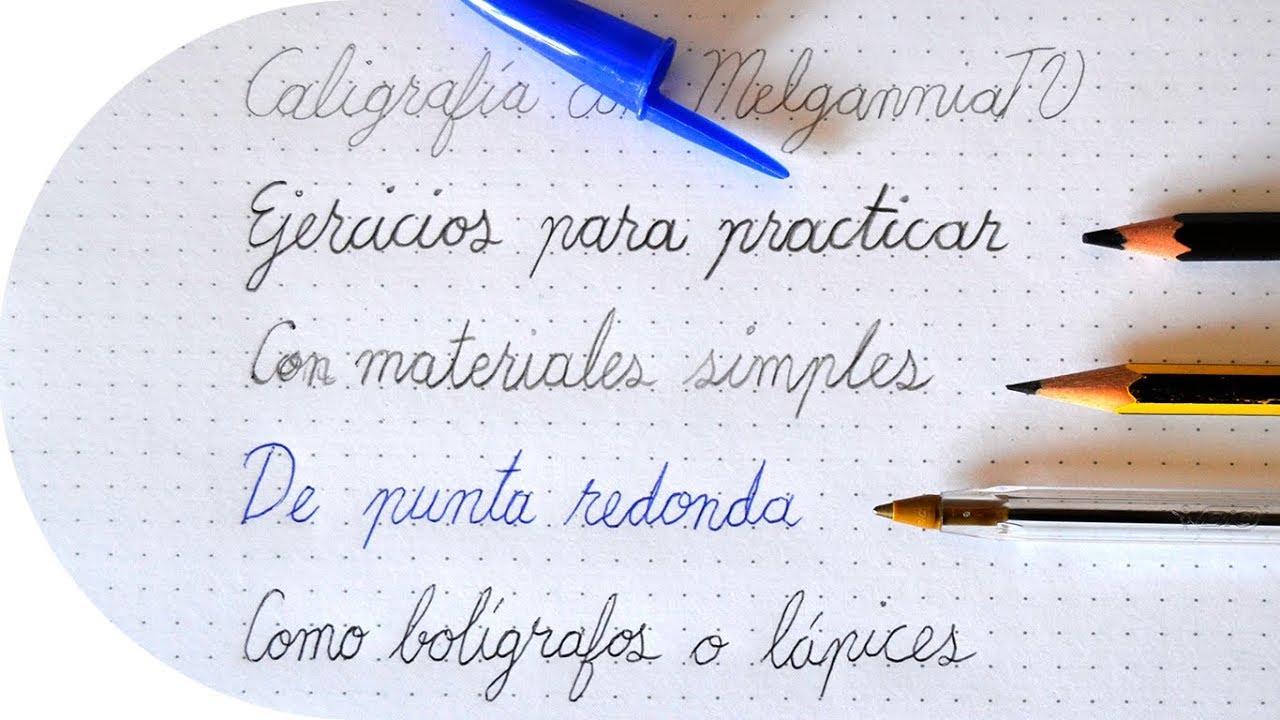 Caligrafía con MelganniaTV
Ejercicios para practicar
Con materiales simples
De punta redonda
Como bolígrafos o lápices